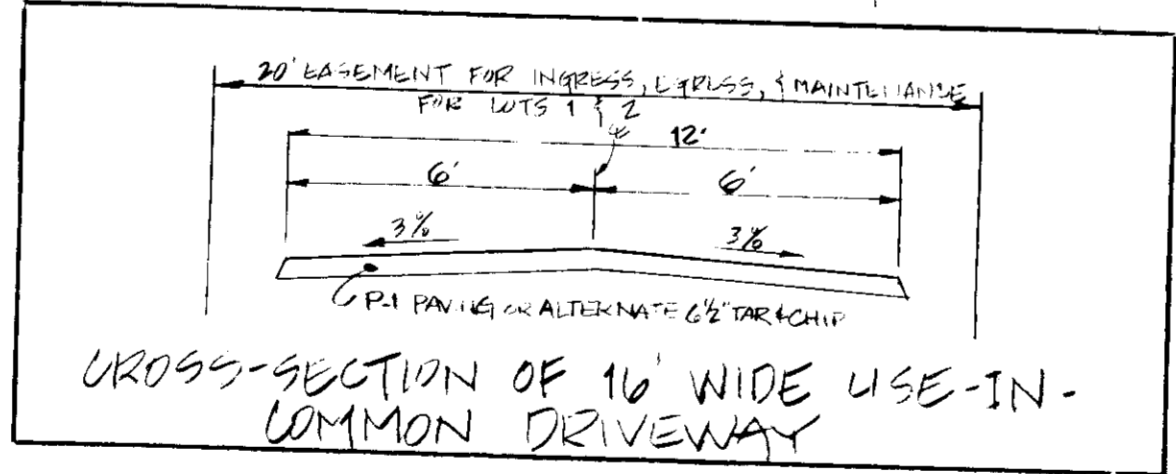 20' EASEMENT FOR INGRESS, EGRESS, & MAINTENANCE
FOR LOTS 1 & 2
℄ 12'
6' 6'
3% 3%
P-1 PAVING OR ALTERNATE 6½" TAR & CHIP
CROSS-SECTION OF 16' WIDE USE-IN-
COMMON DRIVEWAY